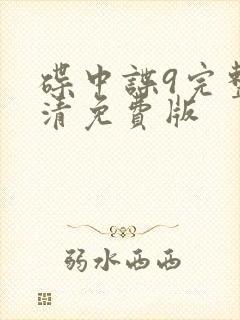 碟中諜9完整
清免費版
弱水西西